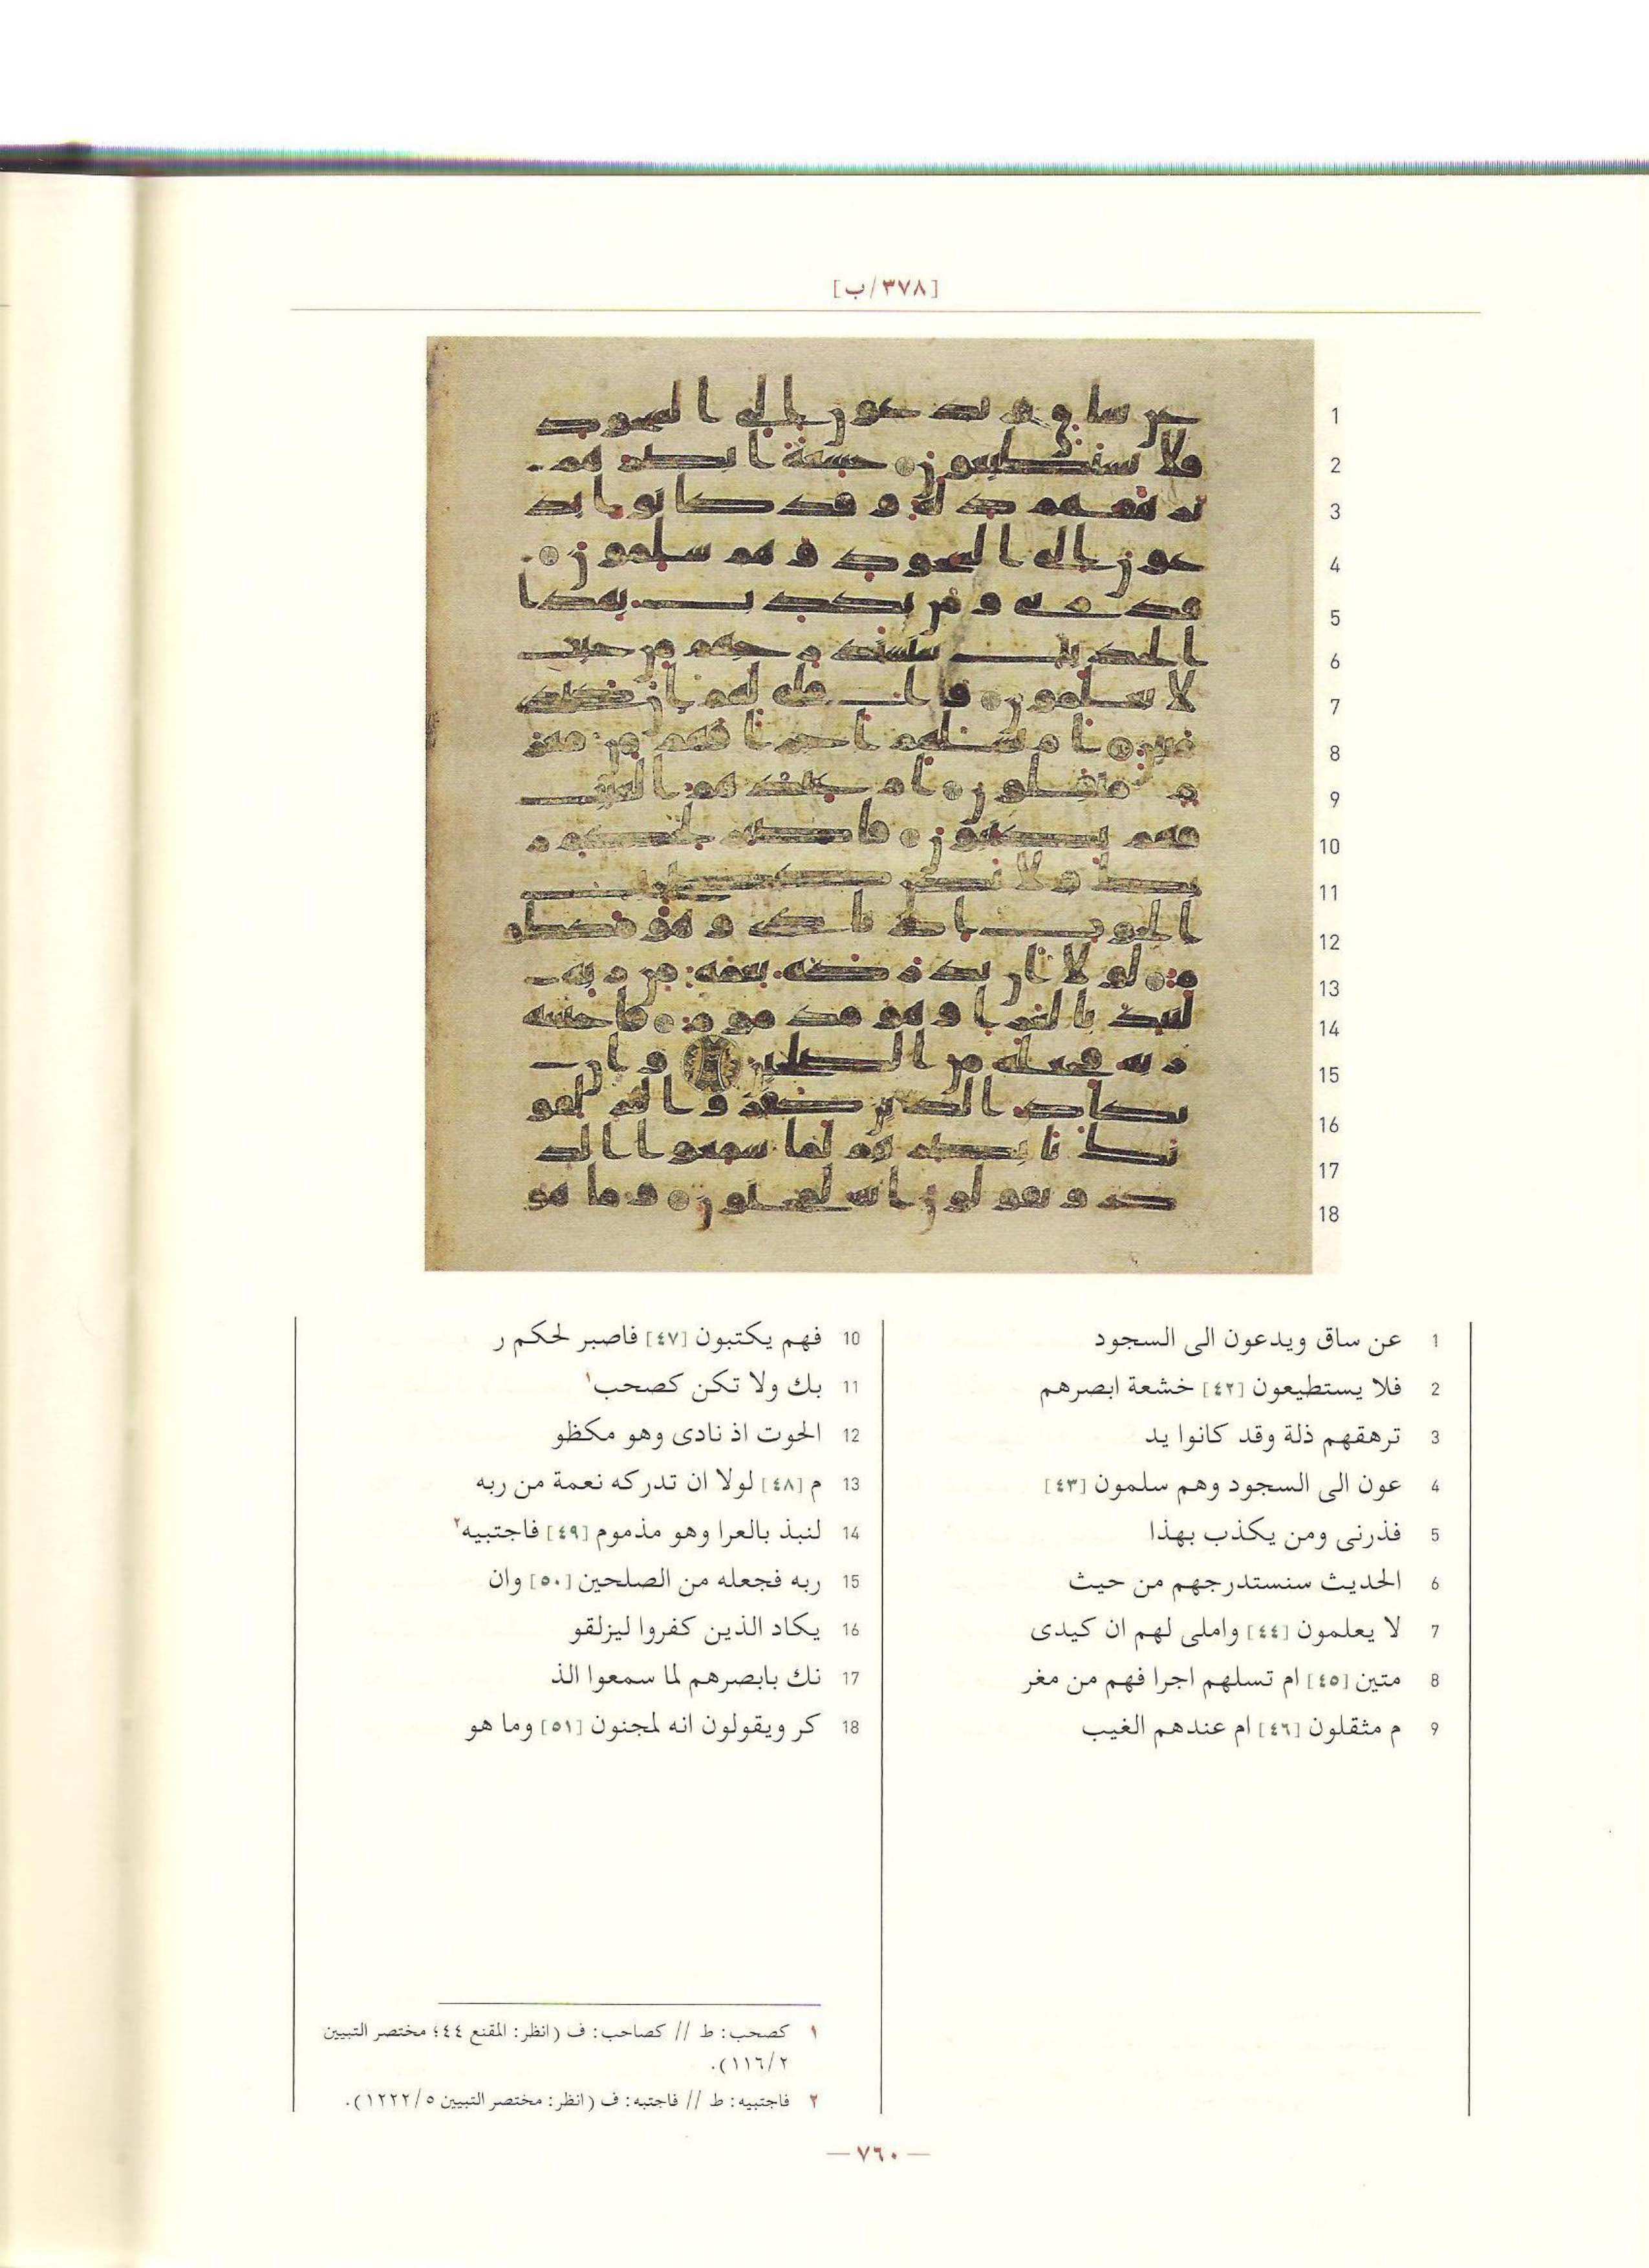 [٣٧٨/ب]
1 عن ساق ويدعون الى السجود
2 فلا يستطيعون [٤٢] خشعة ابصرهم
3 ترهقهم ذلة وقد كانوا يد
4 عون الى السجود وهم سلمون [٤٣]
5 فذرنى ومن يكذب بهذا
6 الحديث سنستدرجهم من حيث
7 لا يعلمون [٤٤] واملى لهم ان كيدى
8 متين [٤٥] ام تسلهم اجرا فهم من مغر
9 م مثقلون [٤٦] ام عندهم الغيب
10 فهم يكتبون [٤٧] فاصبر لحكم ر
11 بك ولا تكن كصحب١
12 الحوت اذ نادى وهو مكظو
13 م [٤٨] لولا ان تدركه نعمة من ربه
14 لنبذ بالعرا وهو مذموم [٤٩] فاجتبيه٢
15 ربه فجعله من الصلحين [٥٠] وان
16 يكاد الذين كفروا ليزلقو
17 نك بابصرهم لما سمعوا الذ
18 كر ويقولون انه لمجنون [٥١] وما هو
١ كصحب: ط // كصاحب: ف (انظر: المقنع ٤٤؛ مختصر التبيين
٢/١١٦).
٢ فاجتبيه: ط // فاجتبه: ف (انظر: مختصر التبيين ٥/١٢٢٢).
— ٧٦٠ —